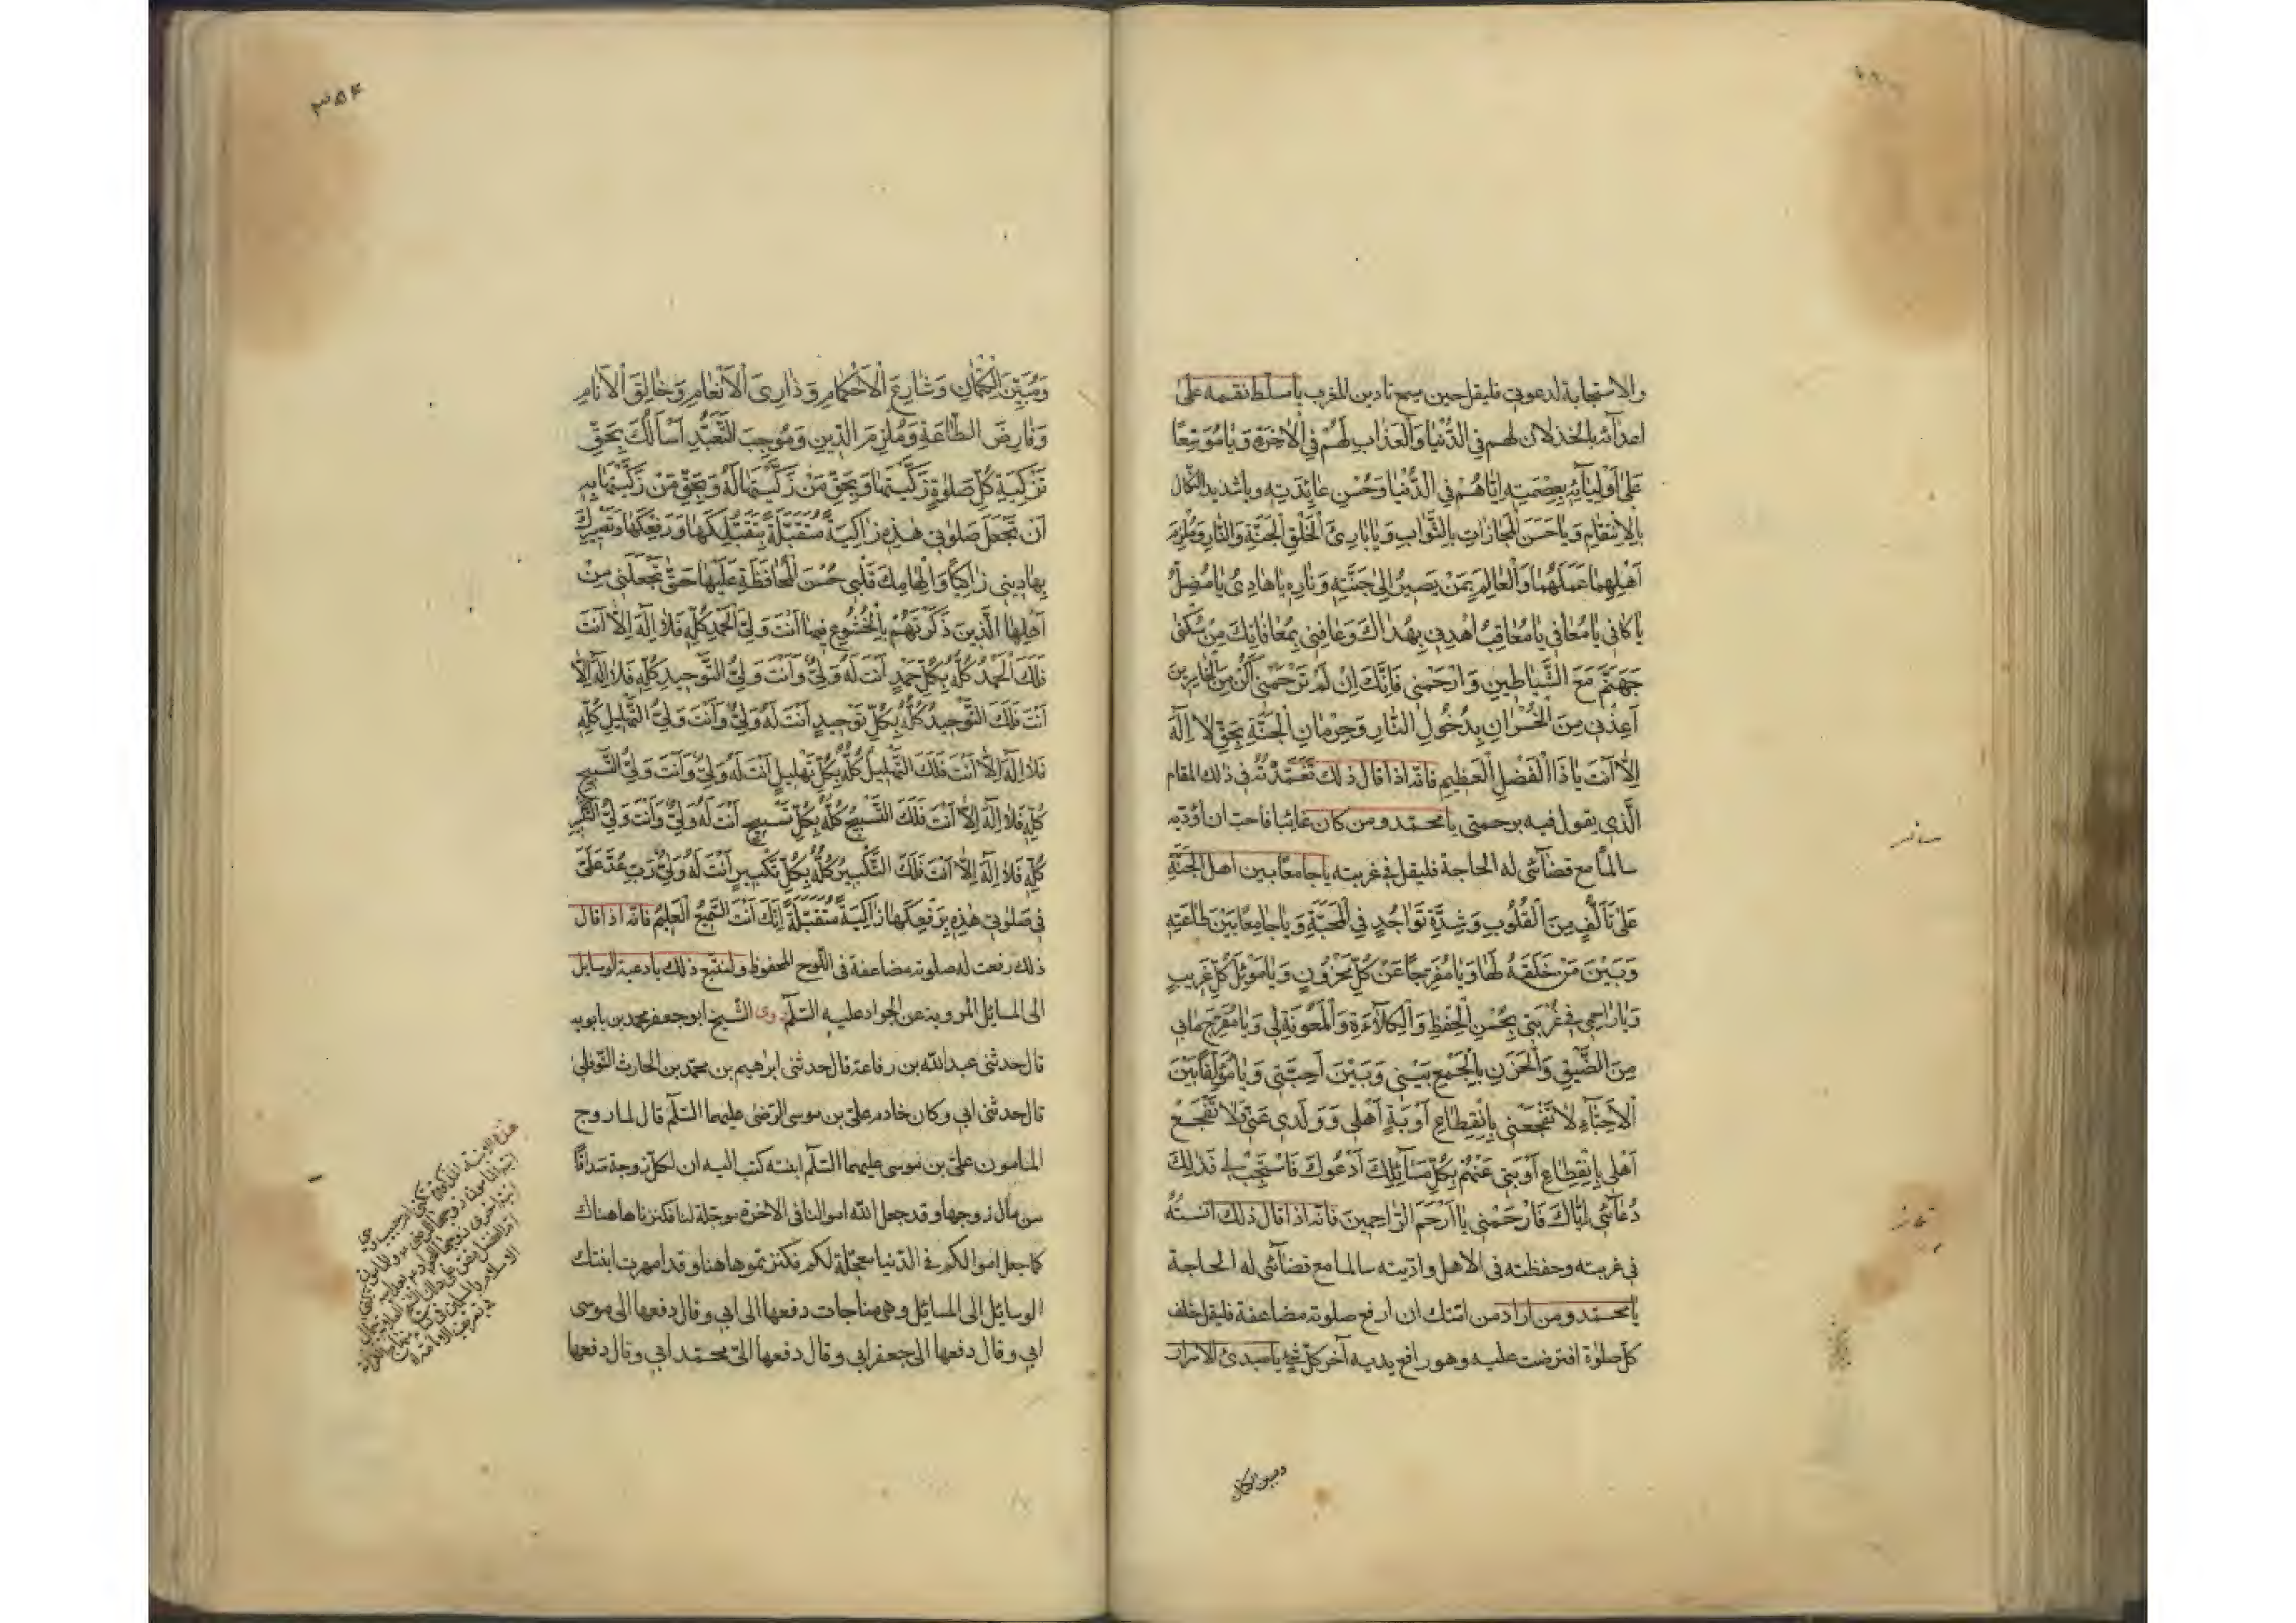 والاستجابة لدعوتي فليقل حين يسمع تاذين المغرب يا مسلط نقمه على
اعدآئه بالخذلان لهم في الدُّنْيَا وَالْعَذَابِ لَهُمْ فِي الْآخِرَةِ وَيَا مُوَسِّعًا
عَلَى أَوْلِيَآئِهِ بِعِصْمَتِهِ إِيَّاهُمْ فِي الدُّنْيَا وَحُسْنِ عَائِدَتِهِ وَيَا شَدِيدَ النَّكَالِ
بِالِانْتِقَامِ وَيَا حَسَنَ الْمُجَازَاتِ بِالثَّوَابِ وَيَا بَارِئَ الْخَلْقِ الْجَنَّةِ وَالنَّارِ وَمُلْزِمَ
أَهْلِهِمَا عَمَلَهُمَا وَالْعَالِمَ بِمَنْ يَصِيرُ إِلَى جَنَّتِهِ وَنَارِهِ يَا هَادِي يَا مُضِلُّ
يَا كَافِي يَا مُعَافِي يَا مُعَاقِبُ اهْدِنِي بِهُدَاكَ وَعَافِنِي بِمُعَافَاتِكَ مِنْ سُكْنَى
جَهَنَّمَ مَعَ الشَّيَاطِينِ وَارْحَمْنِي فَإِنَّكَ إِنْ لَمْ تَرْحَمْنِي أَكُنْ مِنَ الْخَاسِرِينَ
أَعِذْنِي مِنَ الْخُسْرَانِ بِدُخُولِ النَّارِ وَحِرْمَانِ الْجَنَّةِ بِحَقِّ لَا إِلَهَ
إِلَّا أَنْتَ يَا ذَا الْفَضْلِ الْعَظِيمِ فانه اذا قال ذلك تَغَمَّدْتُهُ في ذلك المقام
الَّذي يقول فيه برحمتي يا محمد ومن كان غائبا فاحب ان اؤديه
سالمًا مع قضآئى له الحاجة فليقل في غربته يا جامعًا بين اهل الجنَّةِ
عَلَى تَأَلُّفٍ مِنَ الْقُلُوبِ وَشِدَّةِ تَوَاجُدٍ فِي الْمَحَبَّةِ وَيَا جَامِعًا بَيْنَ طَاعَتِهِ
وَبَيْنَ مَنْ خَلَقَهُ لَهَا وَيَا مُفَرِّجًا عَنْ كُلِّ مَحْزُونٍ وَيَا مَوْئِلَ كُلِّ غَرِيبٍ
وَيَا رَاحِمِي فِي غُرْبَتِي بِحُسْنِ الْحِفْظِ وَالْكِلَاءَةِ وَالْمَعُونَةِ لِي وَيَا مُفَرِّجَ مَا بِي
مِنَ الضِّيقِ وَالْحَزَنِ بِالْجَمْعِ بَيْنِي وَبَيْنَ أَحِبَّتِي وَيَا مُؤَلِّفًا بَيْنَ
الْأَحِبَّآءِ لَا تَفْجَعْنِي بِانْقِطَاعِ أَوْبَةِ أَهْلِي وَوَلَدِي عَنِّي وَلَا تَفْجَعْ
أَهْلِي بِانْقِطَاعِ أَوْبَتِي عَنْهُمْ بِكُلِّ مَسَآئِلِكَ أَدْعُوكَ فَاسْتَجِبْ لِي فَذَلِكَ
دُعَآئِي إِيَّاكَ فَارْحَمْنِي يَا أَرْحَمَ الرَّاحِمِينَ فانه اذا قال ذلك آنسته
في غربته وحفظته في الاهل واديته سالما مع قضآئى له الحاجة
يا محمد ومن اراد من امتك ان ارفع صلوته مضاعفة فليقل خلف
كل صلوة افترضت عليه وهو رافع يديه آخر كل شئ يا مبدئ الاسرار
ومبين الكتمان
٣٥٤
وَمُبَيِّنَ الْكِتْمَانِ وَشَارِعَ الْأَحْكَامِ وَذَارِئَ الْأَنْعَامِ وَخَالِقَ الْأَنَامِ
وَفَارِضَ الطَّاعَةِ وَمُلْزِمَ الدِّينِ وَمُوجِبَ التَّعَبُّدِ أَسْأَلُكَ بِحَقِّ
تَزْكِيَةِ كُلِّ صَلَوةٍ زَكَّيْتَهَا وَبِحَقِّ مَنْ زَكَّيْتَهَا لَهُ وَبِحَقِّ مَنْ زَكَّيْتَهَا بِهِ
أَنْ تَجْعَلَ صَلَوتِي هَذِهِ زَاكِيَةً مُتَقَبَّلَةً بِتَقَبُّلِكَهَا وَرَفْعِكَهَا وَتَصْيِيرِكَ
بِهَا دِينِي زَاكِيًا وَإِلْهَامِكَ قَلْبِي حُسْنَ الْمُحَافَظَةِ عَلَيْهَا حَتَّى تَجْعَلَنِي مِنْ
أَهْلِهَا الَّذِينَ ذَكَرْتَهُمْ بِالْخُشُوعِ فِيهَا أَنْتَ وَلِيُّ الْحَمْدِ كُلِّهِ فَلَا إِلَهَ إِلَّا أَنْتَ
فَلَكَ الْحَمْدُ كُلُّهُ بِكُلِّ حَمْدٍ أَنْتَ لَهُ وَلِيٌّ وَأَنْتَ وَلِيُّ التَّوْحِيدِ كُلِّهِ فَلَا إِلَهَ إِلَّا
أَنْتَ فَلَكَ التَّوْحِيدُ كُلُّهُ بِكُلِّ تَوْحِيدٍ أَنْتَ لَهُ وَلِيٌّ وَأَنْتَ وَلِيُّ التَّهْلِيلِ كُلِّهِ
فَلَا إِلَهَ إِلَّا أَنْتَ فَلَكَ التَّهْلِيلُ كُلُّهُ بِكُلِّ تَهْلِيلٍ أَنْتَ لَهُ وَلِيٌّ وَأَنْتَ وَلِيُّ التَّسْبِيحِ
كُلِّهِ فَلَا إِلَهَ إِلَّا أَنْتَ فَلَكَ التَّسْبِيحُ كُلُّهُ بِكُلِّ تَسْبِيحٍ أَنْتَ لَهُ وَلِيٌّ وَأَنْتَ وَلِيُّ التَّكْبِيرِ
كُلِّهِ فَلَا إِلَهَ إِلَّا أَنْتَ فَلَكَ التَّكْبِيرُ كُلُّهُ بِكُلِّ تَكْبِيرٍ أَنْتَ لَهُ وَلِيٌّ رَبِّ عُدْ عَلَيَّ
فِي صَلَوتِي هَذِهِ بِرَفْعِكَهَا زَاكِيَةً مُتَقَبَّلَةً إِنَّكَ أَنْتَ السَّمِيعُ الْعَلِيمُ فانه اذا قال
ذلك رفعت له صلوته مضاعفة في اللوح المحفوظ ولنتبع ذلك بادعية الوسايل
الى المسايل المروية عن الجواد عليه السّلم روى الشيخ ابو جعفر محمد بن بابويه
قال حدثنى عبد الله بن رفاعة قال حدثنى ابرهيم بن محمد بن الحارث النوفلى
قال حدثنى ابي وكان خادم على بن موسى الرضى عليهما السّلم قال لما زوج
المامون على بن موسى عليهما السّلم ابنته كتب اليه ان لكل زوجة صداقًا
من مال زوجها وقد جعل الله اموالنا في الآخرة موجلة لنا فكنزناها هناك
كما جعل اموالكم في الدنيا معجلة لكم فكنزتموها هنا وقد امهرت ابنتك
الوسايل الى المسايل وهى مناجات دفعها الى ابي وقال دفعها الى موسى
ابي وقال دفعها الى جعفر ابي وقال دفعها الىّ محمد ابي وقال دفعها